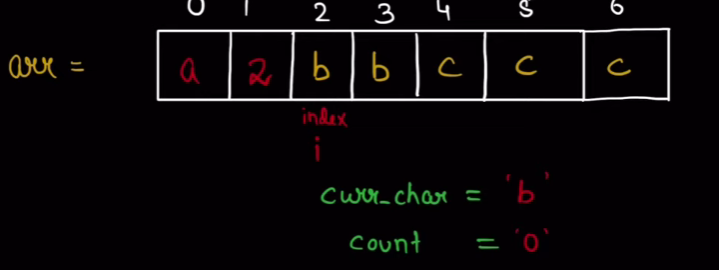 0 1 2 3 4 5 6
arr = a 2 b b c c c
index
i
curr_char = 'b'
count = '0'